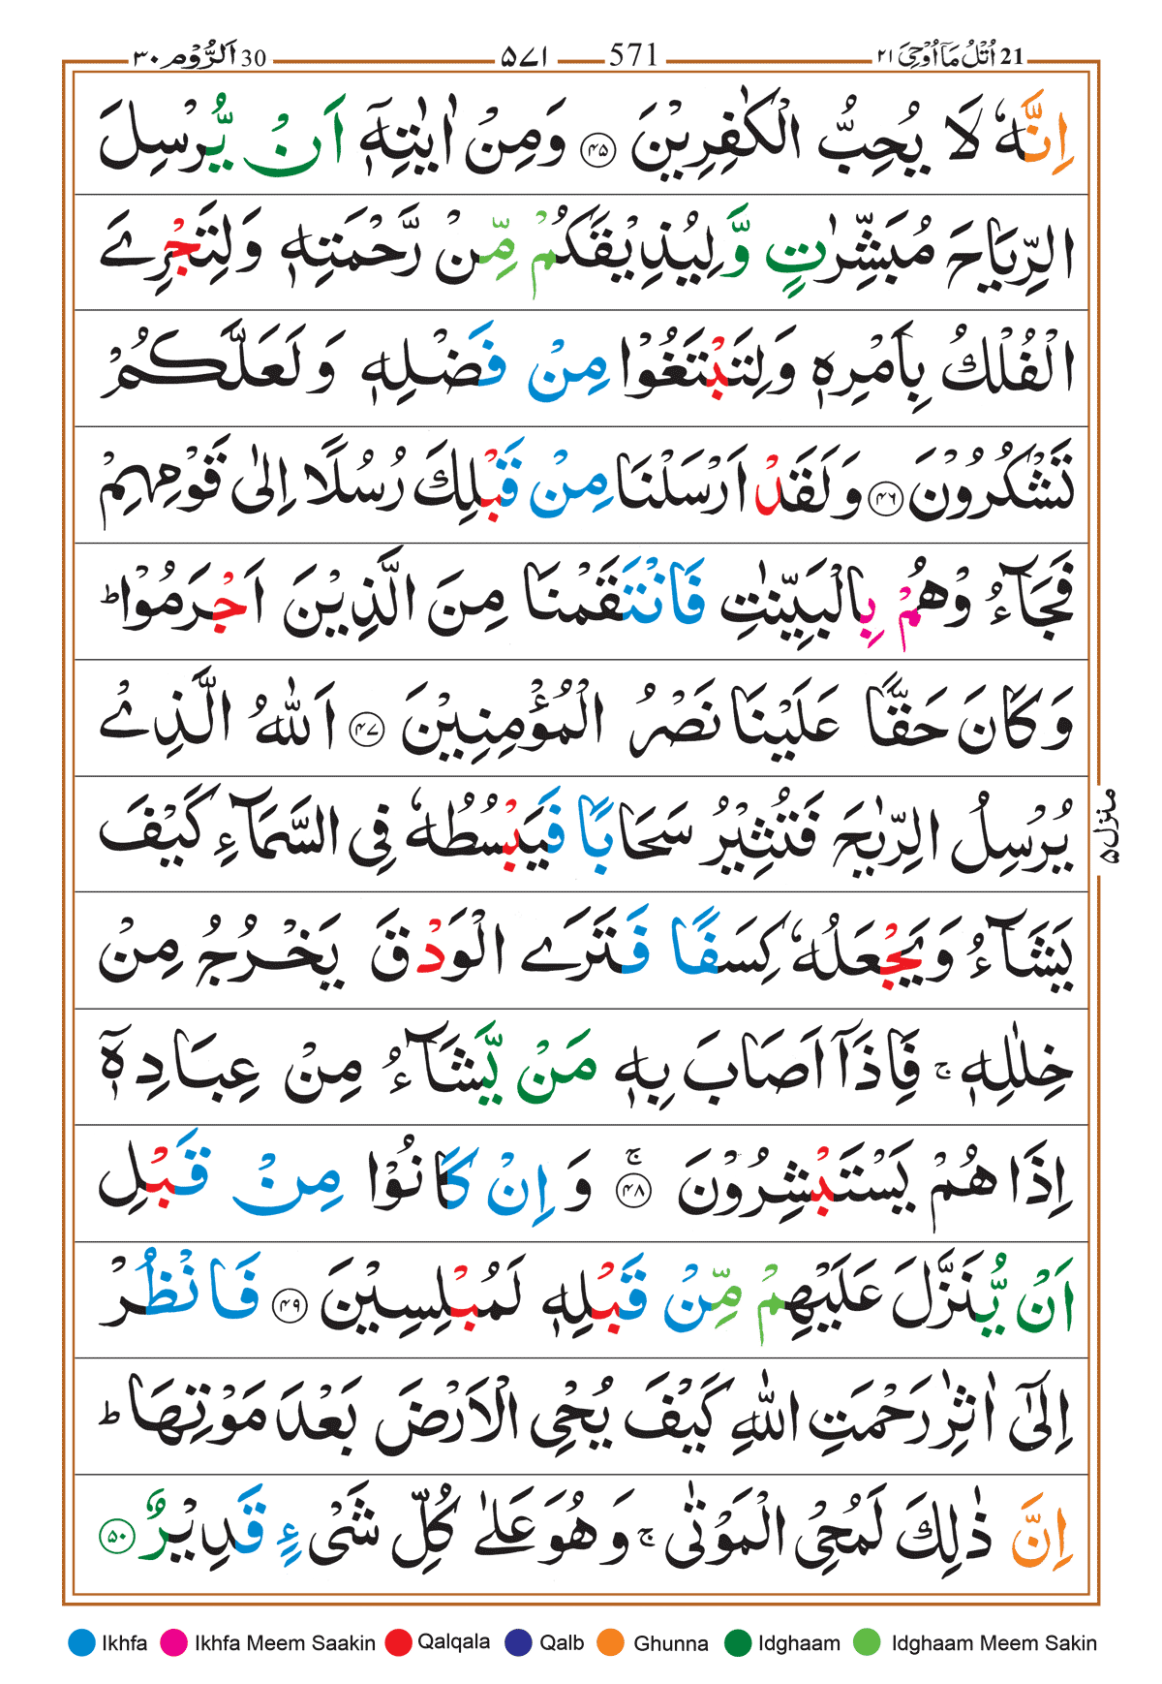 21 اُتْلُ مَاۤ اُوْحِیَ ۲۱ 571 ۵۷۱ 30 اَلرُّوْم ۳۰
اِنَّهٗ لَا یُحِبُّ الْكٰفِرِیْنَ ﴿۴۵﴾ وَمِنْ اٰیٰتِهٖۤ اَنْ یُّرْسِلَ
الرِّیَاحَ مُبَشِّرٰتٍ وَّلِیُذِیْقَكُمْ مِّنْ رَّحْمَتِهٖ وَلِتَجْرِیَ
الْفُلْكُ بِاَمْرِهٖ وَلِتَبْتَغُوْا مِنْ فَضْلِهٖ وَلَعَلَّكُمْ
تَشْكُرُوْنَ ﴿۴۶﴾ وَلَقَدْ اَرْسَلْنَا مِنْ قَبْلِكَ رُسُلًا اِلٰی قَوْمِهِمْ
فَجَآءُوْهُمْ بِالْبَیِّنٰتِ فَانْتَقَمْنَا مِنَ الَّذِیْنَ اَجْرَمُوْا ؕ
وَكَانَ حَقًّا عَلَیْنَا نَصْرُ الْمُؤْمِنِیْنَ ﴿۴۷﴾ اَللّٰهُ الَّذِیْ
یُرْسِلُ الرِّیٰحَ فَتُثِیْرُ سَحَابًا فَیَبْسُطُهٗ فِی السَّمَآءِ كَیْفَ
یَشَآءُ وَیَجْعَلُهٗ كِسَفًا فَتَرَی الْوَدْقَ یَخْرُجُ مِنْ
خِلٰلِهٖ ۚ فَاِذَاۤ اَصَابَ بِهٖ مَنْ یَّشَآءُ مِنْ عِبَادِهٖۤ
اِذَا هُمْ یَسْتَبْشِرُوْنَ ۚ﴿۴۸﴾ وَاِنْ كَانُوْا مِنْ قَبْلِ
اَنْ یُّنَزَّلَ عَلَیْهِمْ مِّنْ قَبْلِهٖ لَمُبْلِسِیْنَ ﴿۴۹﴾ فَانْظُرْ
اِلٰۤی اٰثٰرِ رَحْمَتِ اللّٰهِ كَیْفَ یُحْیِ الْاَرْضَ بَعْدَ مَوْتِهَا ؕ
اِنَّ ذٰلِكَ لَمُحْیِ الْمَوْتٰی ۚ وَهُوَ عَلٰی كُلِّ شَیْءٍ قَدِیْرٌ ﴿۵۰﴾
منزل۵
Ikhfa Ikhfa Meem Saakin Qalqala Qalb Ghunna Idghaam Idghaam Meem Sakin